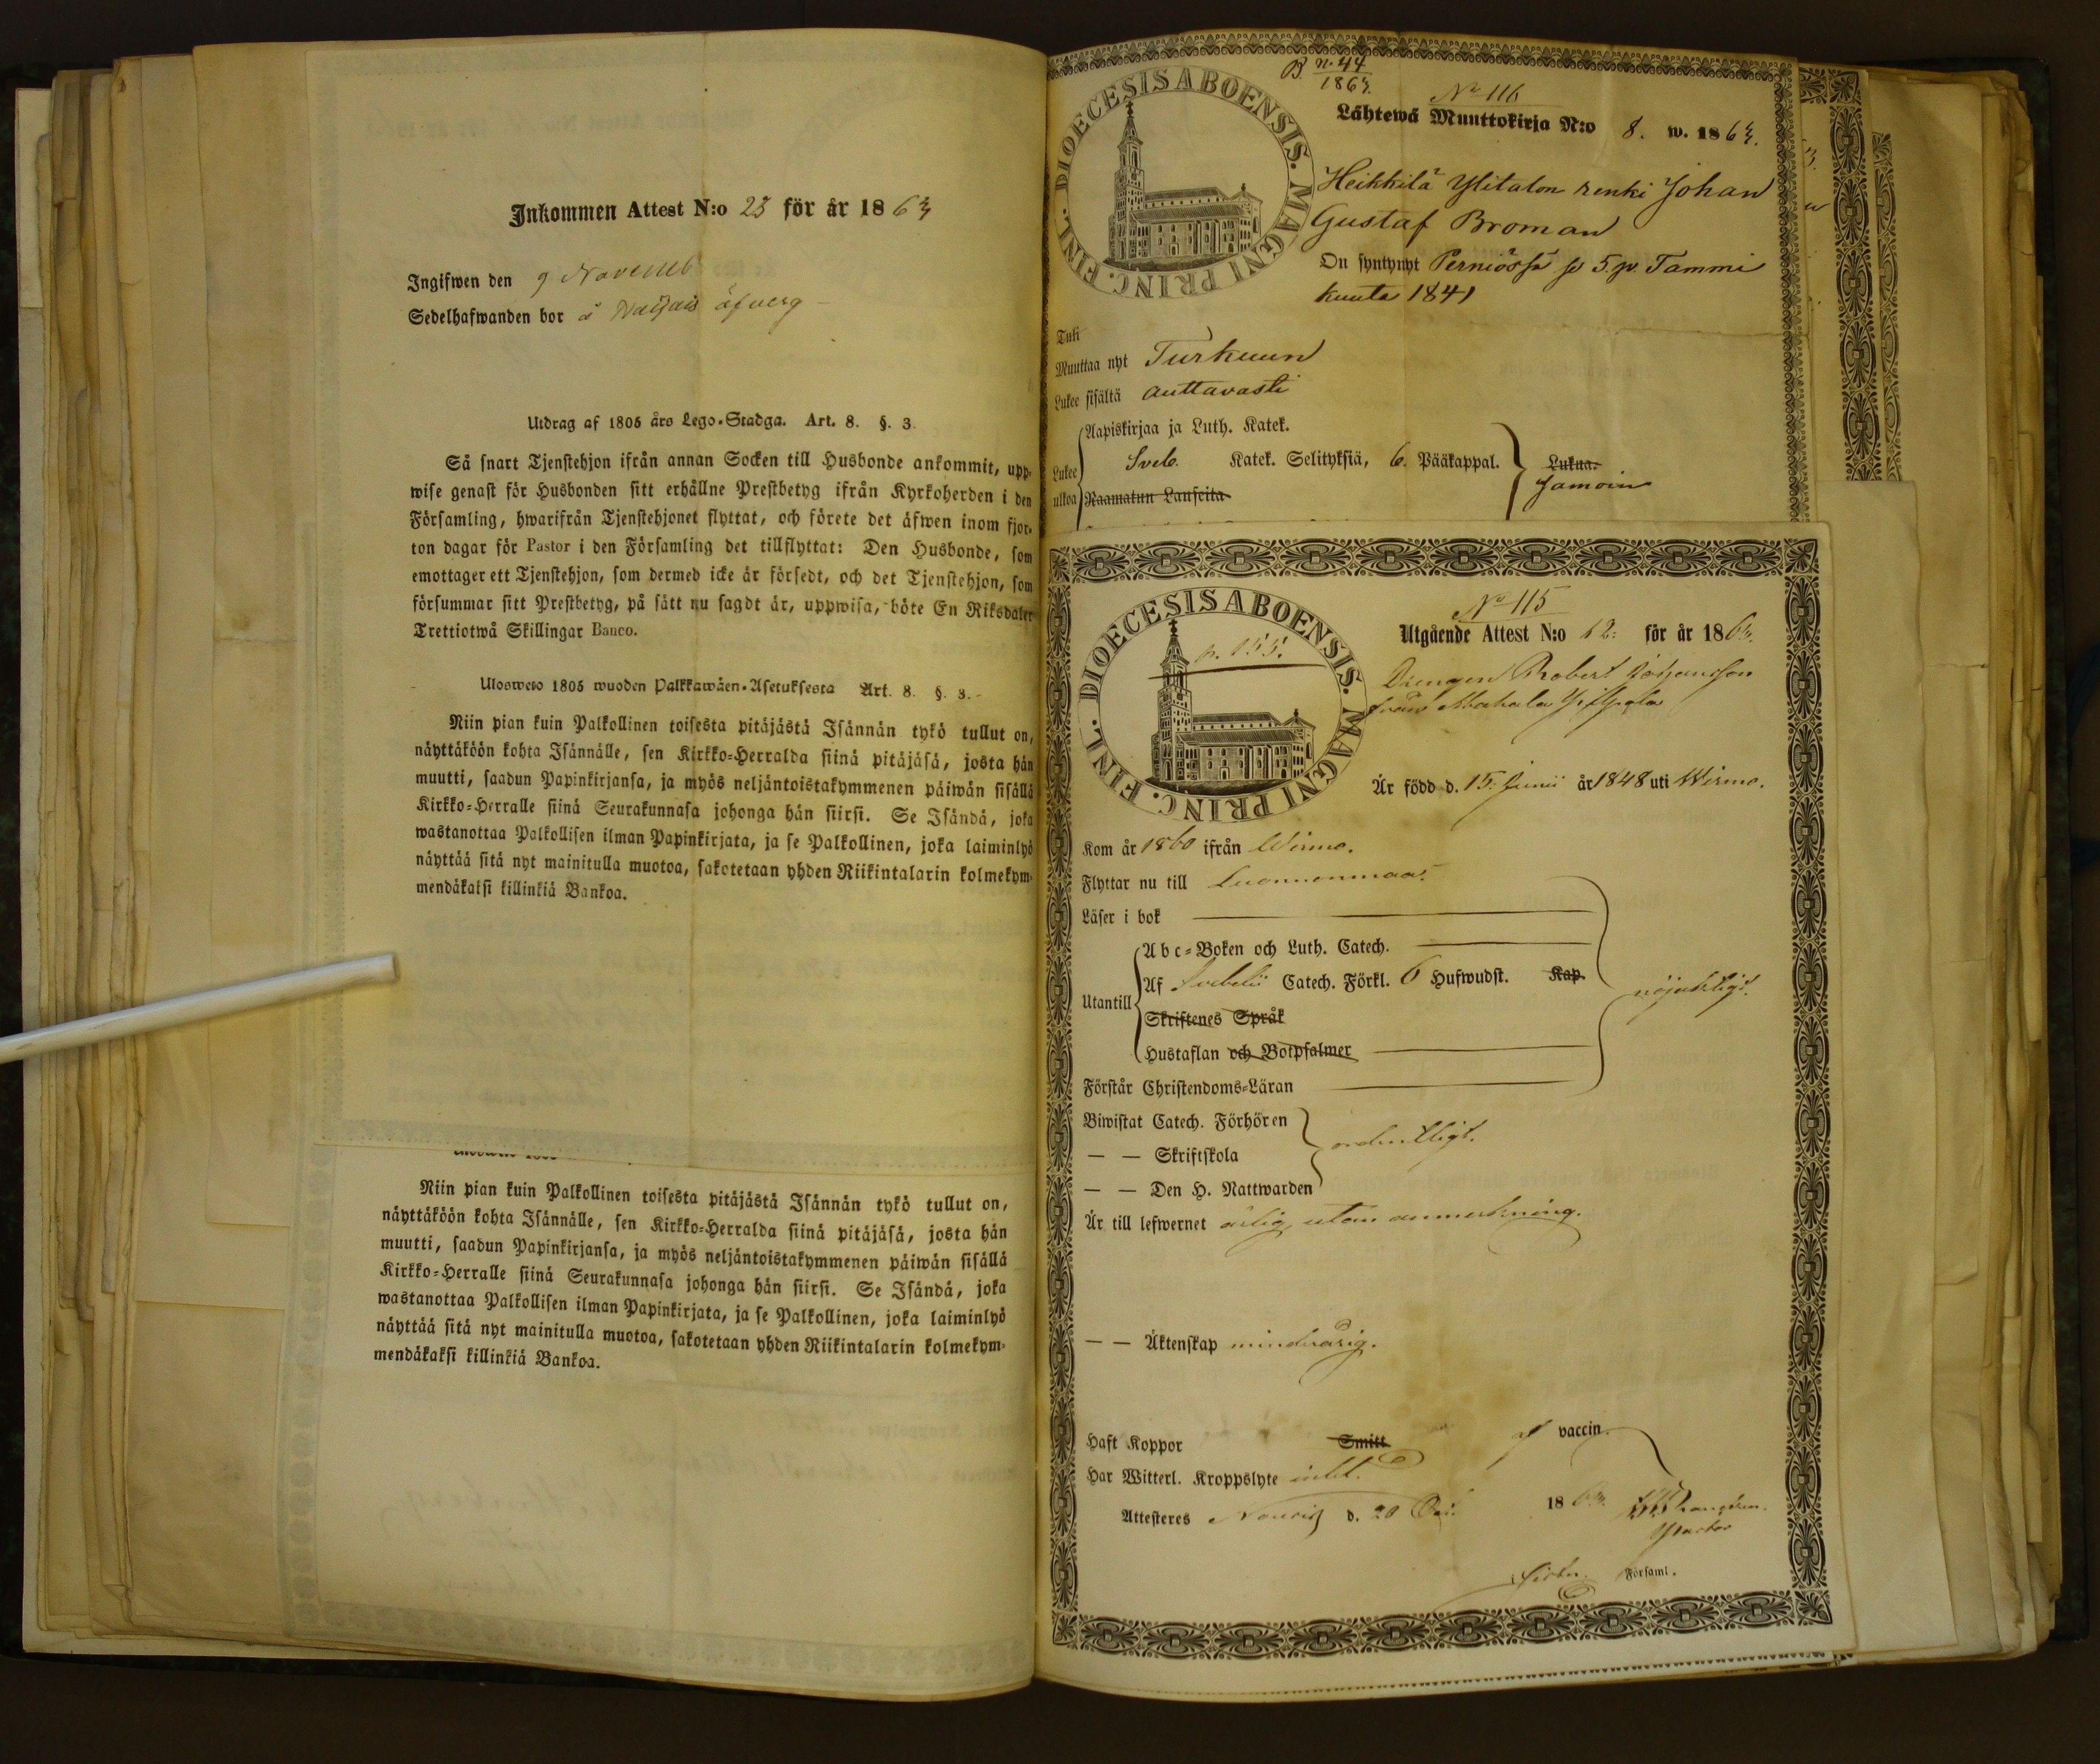 Inkommen Attest N:o 23 för år 186
Ingifwen den 9 Novemb
Sedelhafwanden bor å
Utdrag af 1805 års Lego-Stadga. Art. 8. §. 3.
Så snart Tjenstehjon ifrån annan Socken till Husbonde ankommit, upp-
wise genast för Husbonden sitt erhållne Prestbetyg ifrån Kyrkoherden i den
Församling, hwarifrån Tjenstehjonet flyttat, och förete det äfwen inom fjor-
ton dagar för Pastor i den Församling det tillflyttat: Den Husbonde, som
emottager ett Tjenstehjon, som dermed icke är försedt, och det Tjenstehjon, som
försummar sitt Prestbetyg, på sätt nu sagdt är, uppwisa, böte En Riksdaler
Trettiotwå Skillingar Banco.
Ulosweto 1805 wuoden Palkkawäen-Asetuksesta Art. 8. §. 3.
Niin pian kuin Palkollinen toisesta pitäjästä Isännän tykö tullut on,
näyttäköön kohta Isännälle, sen Kirkko-Herralda siinä pitäjäsä, josta hän
muutti, saadun Papinkirjansa, ja myös neljäntoistakymmenen päiwän sisällä
Kirkko-Herralle siinä Seurakunnasa johonga hän siirsi. Se Isändä, joka
wastanottaa Palkollisen ilman Papinkirjata, ja se Palkollinen, joka laiminlyö
näyttää sitä nyt mainitulla muotoa, sakotetaan yhden Riikintalarin kolmekym-
mendäkaksi killinkiä Bankoa.
Niin pian kuin Palkollinen toisesta pitäjästä Isännän tykö tullut on,
näyttäköön kohta Isännälle, sen Kirkko-Herralda siinä pitäjäsä, josta hän
muutti, saadun Papinkirjansa, ja myös neljäntoistakymmenen päiwän sisällä
Kirkko-Herralle siinä Seurakunnasa johonga hän siirsi. Se Isändä, joka
wastanottaa Palkollisen ilman Papinkirjata, ja se Palkollinen, joka laiminlyö
näyttää sitä nyt mainitulla muotoa, sakotetaan yhden Riikintalarin kolmekym-
mendäkaksi killinkiä Bankoa.
B n. 44
DIOECESIS ABOENSIS. MAGNI PRINC. FINL.
No 116
Lähtewä Muuttokirja N:o 8. w. 186
Heikkilä Ylitalon renki Johan
Gustaf Broman
On syntynyt Perniössä se 5. p. Tammi
kuuta 1841
Tuli
Muuttaa nyt Turkuun
Lukee sisältä auttavasti
Lukee ulkoa
Aapiskirjaa ja Luth. Katek.
Sveb. Katek. Selityksiä, 6. Pääkappal.
Raamatun Lauseita
Lukua.
Samoin
DIOECESIS ABOENSIS. MAGNI PRINC. FINL.
p. 155.
No 115
Utgående Attest N:o 12: för år 186
Drengen Robert Johansson
från
Är född d. 15: Junii år 1848 uti Wirmo.
Kom år 1860 ifrån Wirmo.
Flyttar nu till Luonnonmaa.
Läser i bok
Utantill
Abc-Boken och Luth. Catech.
Af Svebelii Catech. Förkl. 6 Hufwudst. Kap.
Skriftenes Språk
Hustaflan och Botpsalmer
nöjaktligt.
Förstår Christendoms-Läran
Biwistat Catech. Förhören
— — Skriftskola
— — Den H. Nattwarden
ordentligt.
Är till lefwernet ärlig, utan anmerkning.
— — Äktenskap minderårig.
Haft Koppor Smitt af vaccin.
Har Witterl. Kroppslyte intet.
Attesteres d. 20 186
Pastor
Församl.